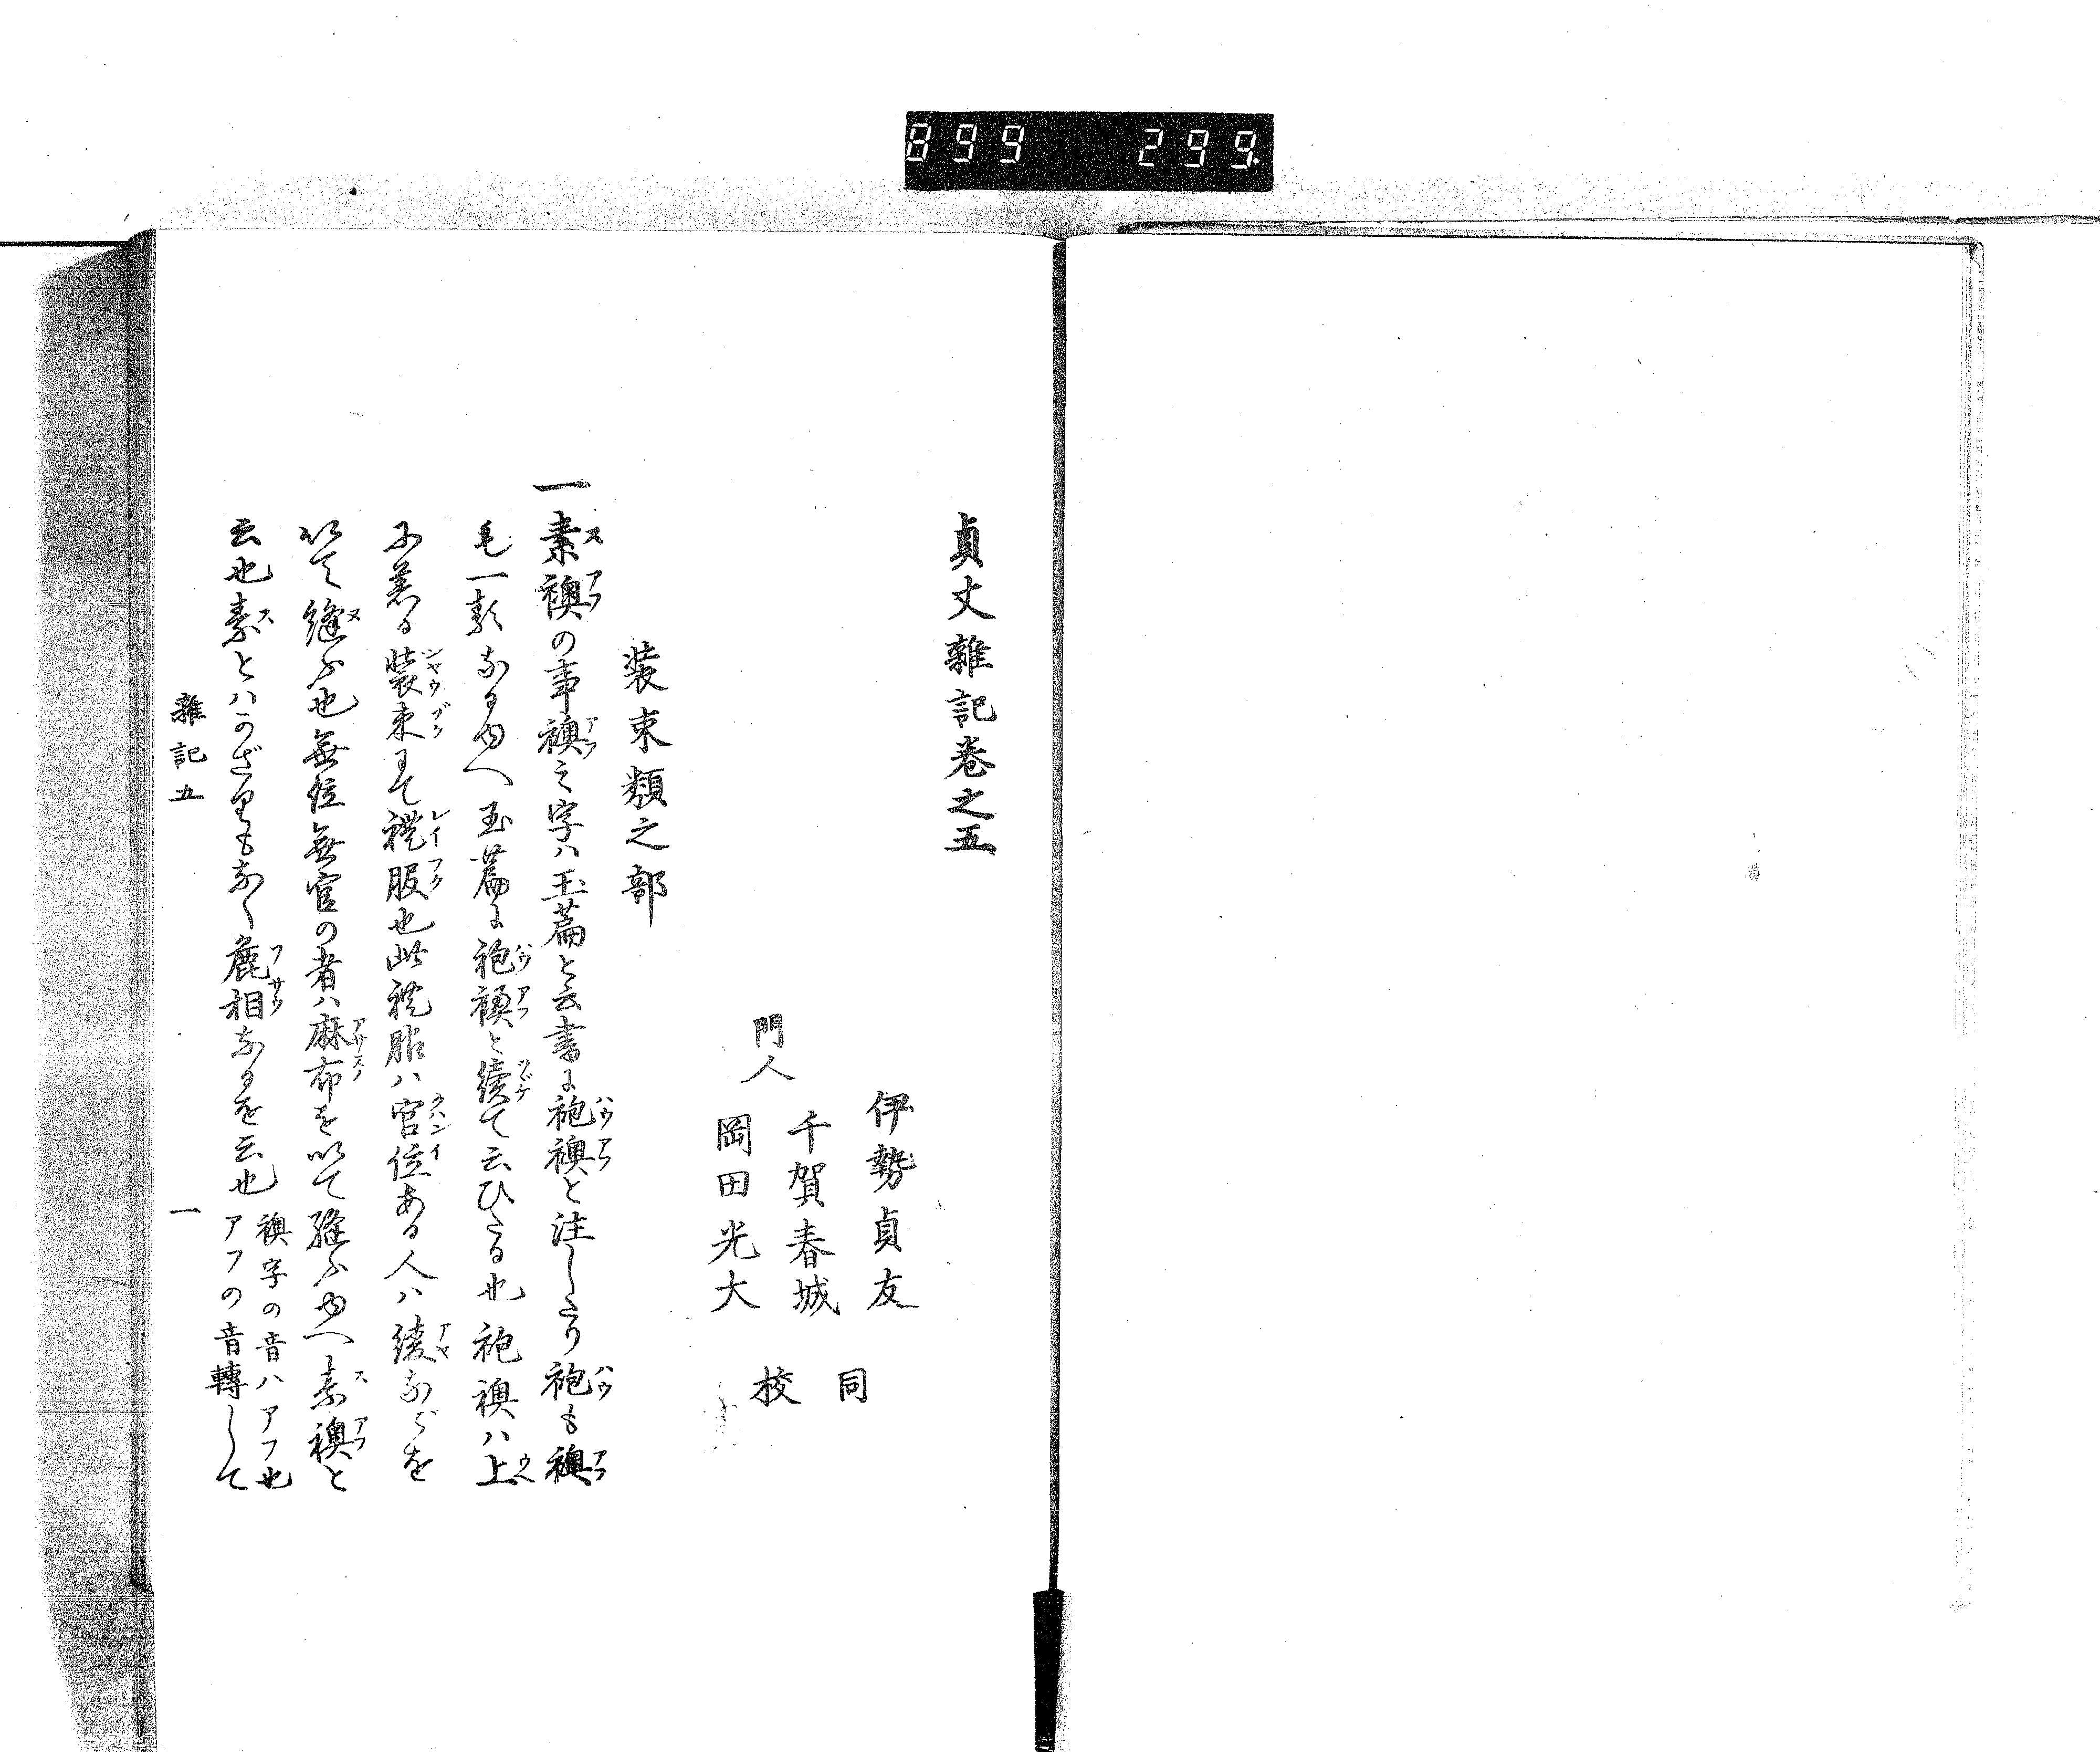 899 299.
貞丈雜記卷之五
伊勢貞友
同
千賀春城
門人
校
岡田光大
装束類之部
一素襖の事襖之字ハ玉篇と云書に袍襖と注したり袍も襖
も一類なるゆへ玉篇に袍襖と續て云ひたる也袍襖ハ上
に着る装束にて禮服也此禮服ハ官位ある人ハ綾などを
以て縫ふ也無位無官の者ハ麻布を以て縫ふゆへ素襖と
云也素とハかざりもなく麁相なるを云也
襖字の音ハアフ也
アフの音轉して
雜記五
一